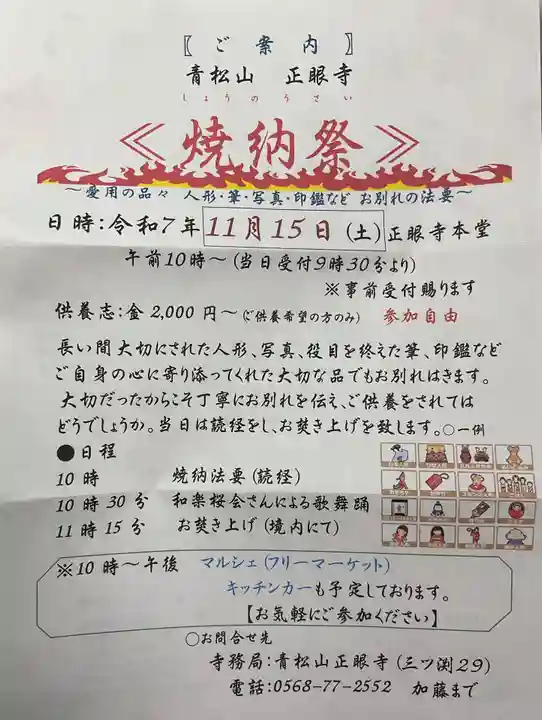 〖ご案内〗
青松山 正眼寺
しょうのうさい
≪焼納祭≫
～愛用の品々 人形・筆・写真・印鑑など お別れの法要～
日時:令和7年 11月15日(土)正眼寺本堂
午前10時～(当日受付9時30分より)
※事前受付賜ります
供養志:金2,000円～(ご供養希望の方のみ) 参加自由
長い間大切にされた人形、写真、役目を終えた筆、印鑑など
ご自身の心に寄り添ってくれた大切な品でもお別れはきます。
大切だったからこそ丁寧にお別れを伝え、ご供養をされては
どうでしょうか。当日は読経をし、お焚き上げを致します。○一例
●日程
10時 焼納法要(読経)
10時30分 和楽桜会さんによる歌舞踊
11時15分 お焚き上げ(境内にて)
※10時～午後 マルシェ(フリーマーケット)
キッチンカーも予定しております。
【お気軽にご参加ください】
○お問合せ先
寺務局:青松山正眼寺(三ツ渕29)
電話:0568-77-2552 加藤まで